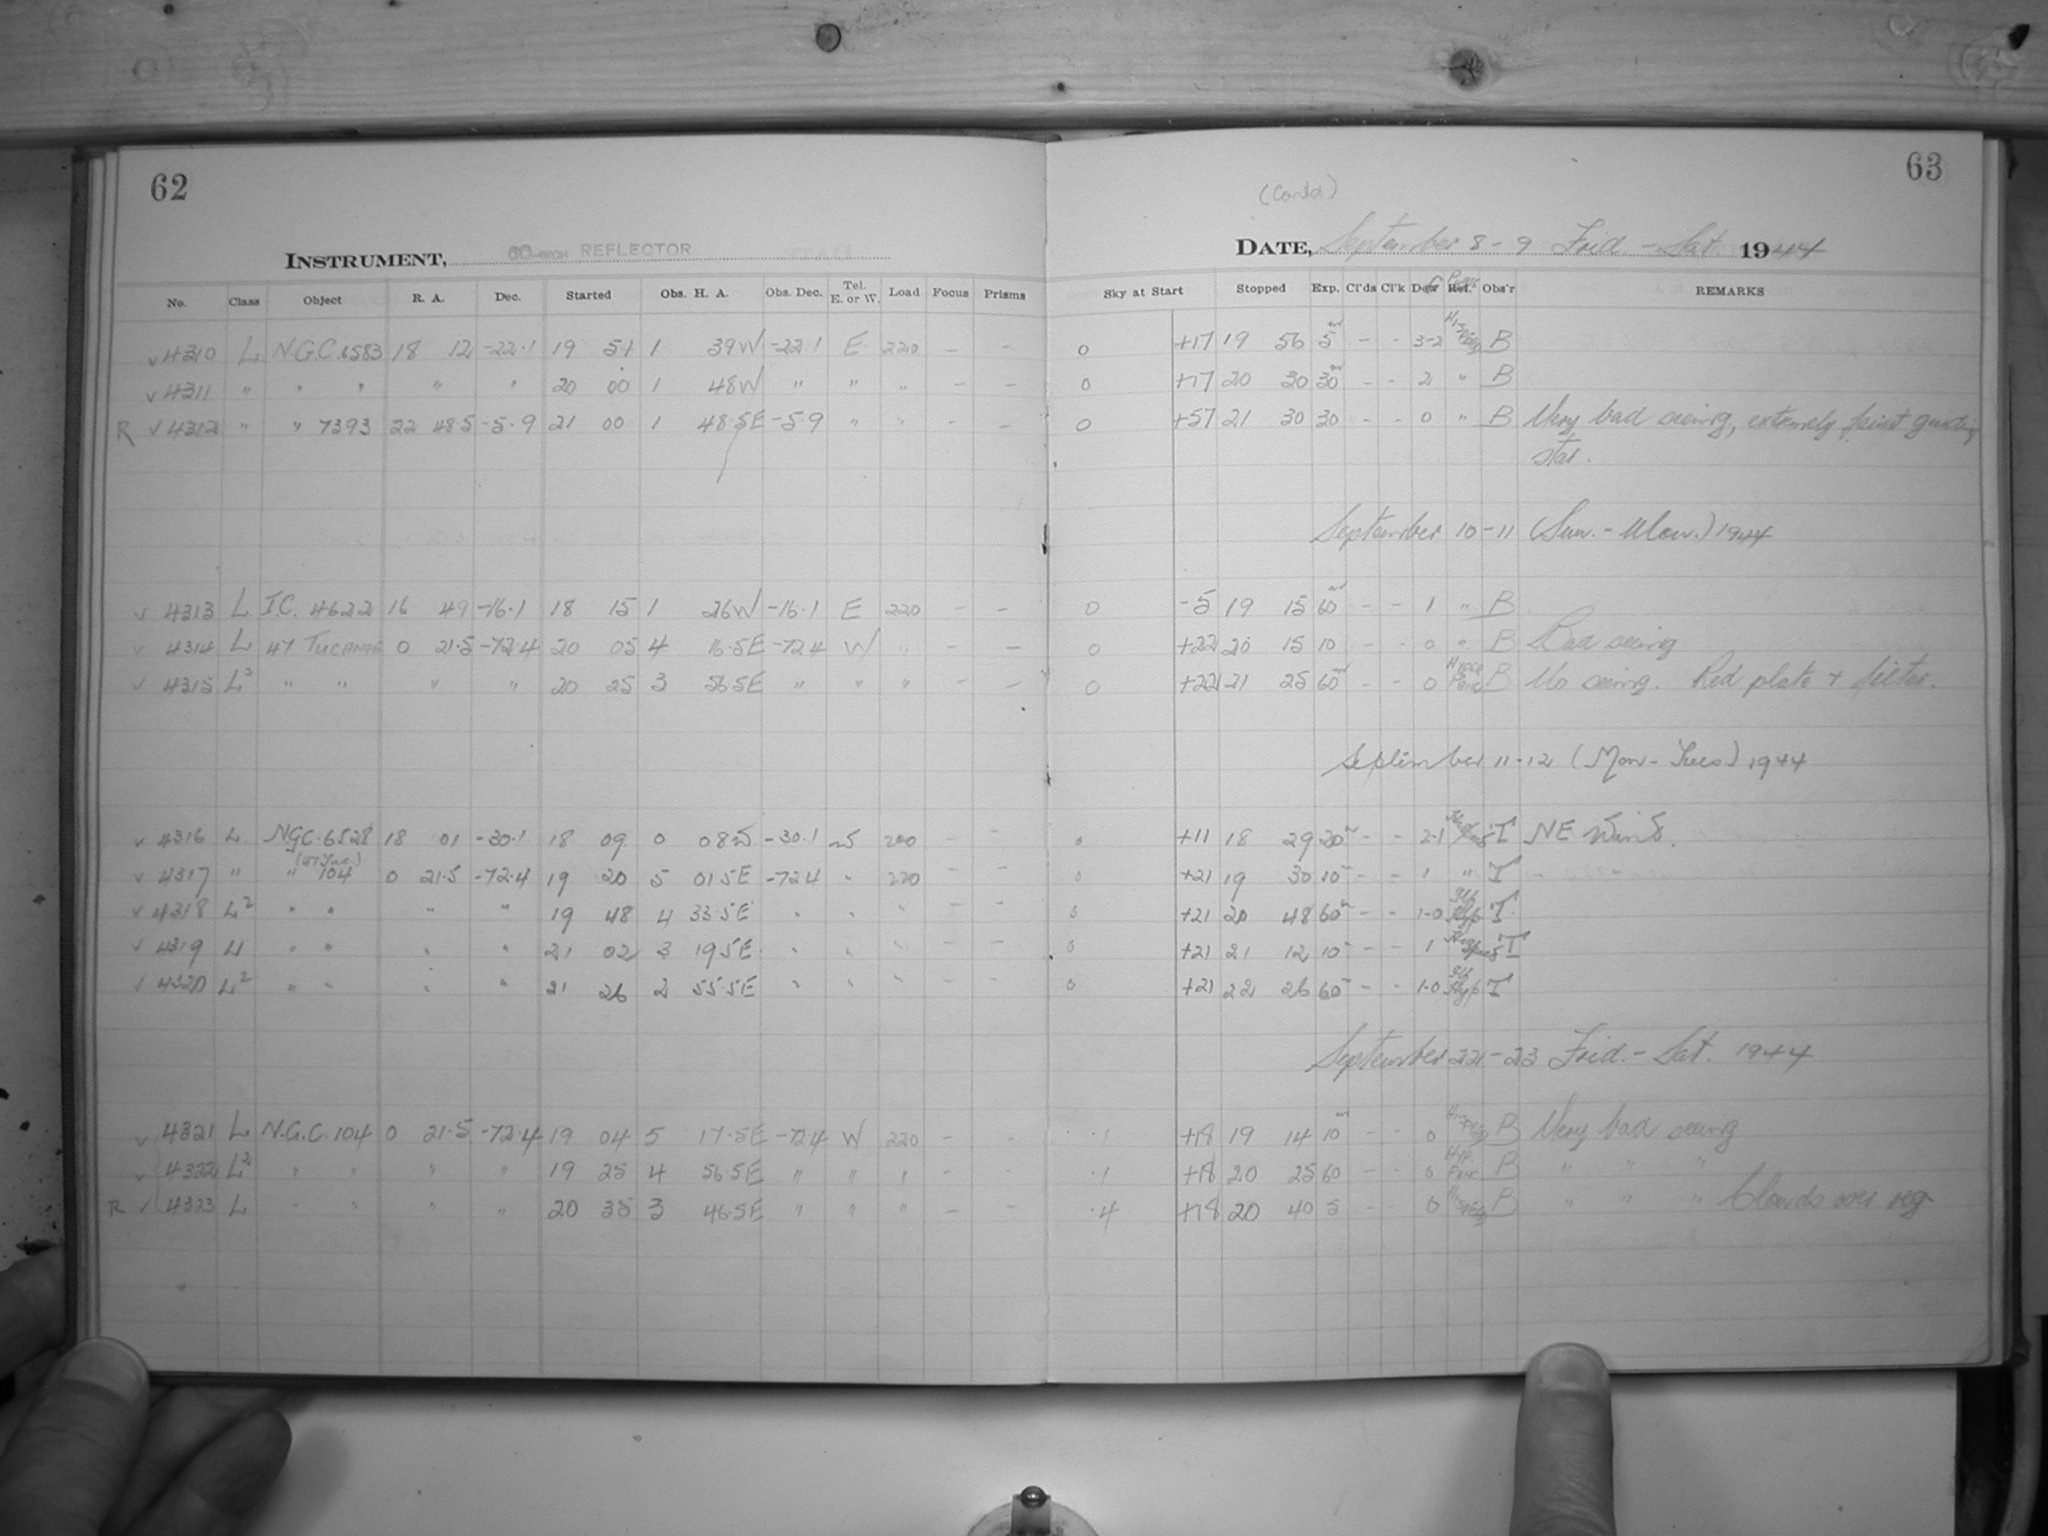 62
INSTRUMENT, 60-INCH REFLECTOR
No. Class Object R. A. Dec. Started Obs. H. A. Obs. Dec. Tel. E. or W. Load Focus Prisms
v 4310 L N.G.C. 6583 18 12 -22.1 19 51 1 39W -22.1 E 220 - -
v 4311 " " " " " 20 00 1 48W " " " - -
R v 4312 " " 7393 22 48.5 -5.9 21 00 1 48.5E -5.9 " " - -
v 4313 L I.C. 4622 16 49 -16.1 18 15 1 26W -16.1 E 220 - -
v 4314 L 47 TUCANAE 0 21.5 -72.4 20 05 4 16.5E -72.4 W " - -
v 4315 L " " " " 20 25 3 56.5E " " " - -
v 4316 L NGC. 6528 18 01 -30.1 18 09 0 08W -30.1 W 220 - -
(47 Tuc.)
v 4317 " " 104 0 21.5 -72.4 19 20 5 01.5E -72.4 " 220 - -
v 4318 L2 " " " " 19 48 4 33.5E " " " - -
v 4319 L " " " " 21 02 3 19.5E " " " - -
v 4320 L2 " " " " 21 26 2 55.5E " " " - -
v 4321 L N.G.C. 104 0 21.5 -72.4 19 04 5 17.5E -72.4 W 220 - -
v 4322 L2 " " " " 19 25 4 56.5E " " " - -
R v 4323 L " " " " 20 35 3 46.5E " " " - -
63
(Contd)
DATE, September 8-9 Frid - Sat. 1944
Sky at Start Stopped Exp. Cl'ds Cl'k Dew Ref. Obs'r REMARKS
0 +17 19 56 5m - - 3-2 B
0 +17 20 30 30m - - 2 " B
0 +57 21 30 30 - - 0 " B Very bad seeing, extremely faint guiding
star.
September 10-11 (Sun. - Mon.) 1944
0 -5 19 15 60m - - 1 " B
0 +22 20 15 10 - - 0 " B Bad seeing
0 +22 21 25 60m - - 0 HYPER PANC B No seeing. Red plate + filter.
September 11-12 (Mon - Tues) 1944
0 +11 18 29 20m - - 2-1 T NE Wind.
0 +21 19 30 10m - - 1 " T
0 +21 20 48 60m - - 1-0 T
0 +21 21 12 10m - - 1 T
0 +21 22 26 60m - - 1-0 T
September 22-23 Frid. - Sat. 1944
.1 +18 19 14 10m - - 0 B Very bad seeing
.1 +18 20 25 60 - - 0 HYP. PANC B " " "
.4 +18 20 40 5 - - 0 B " " " Clouds over reg.